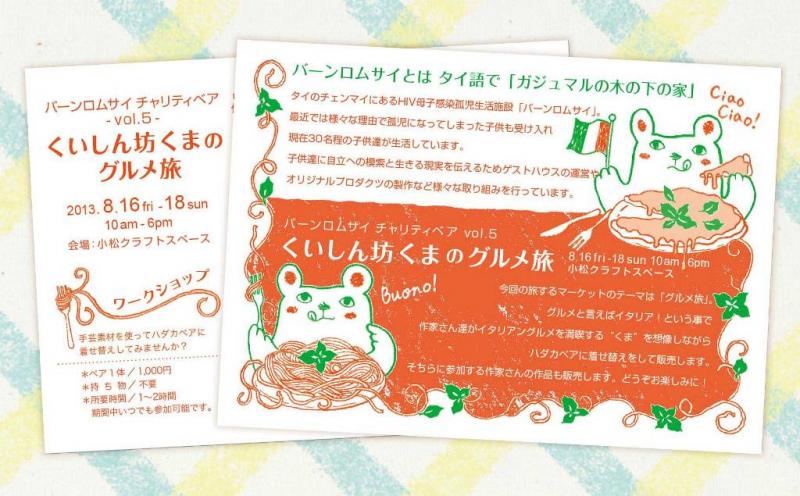 バーンロムサイ チャリティベア
- vol.5 -
くいしん坊くまの
グルメ旅
2013. 8.16 fri -18 sun
10am - 6pm
会場：小松クラフトスペース
ワークショップ
手芸素材を使ってハダカベアに
着せ替えしてみませんか？
＊ベア1体／1,000円
＊持ち物／不要
＊所要時間／1〜2時間
期間中いつでも参加可能です。
バーンロムサイとは タイ語で「ガジュマルの木の下の家」
タイのチェンマイにあるHIV母子感染孤児生活施設「バーンロムサイ」。
最近では様々な理由で孤児になってしまった子供も受け入れ
現在30名程の子供達が生活しています。
子供達に自立への模索と生きる現実を伝えるためゲストハウスの運営や
オリジナルプロダクツの製作など様々な取り組みを行っています。
Ciao
Ciao!
バーンロムサイ チャリティベア vol.5
くいしん坊くまのグルメ旅
8.16 fri -18 sun 10am - 6pm
小松クラフトスペース
Buono!
今回の旅するマーケットのテーマは「グルメ旅」。
グルメと言えばイタリア！という事で
作家さん達がイタリアングルメを満喫する“くま”を想像しながら
ハダカベアに着せ替えをして販売します。
そちらに参加する作家さんの作品も販売します。どうぞお楽しみに！